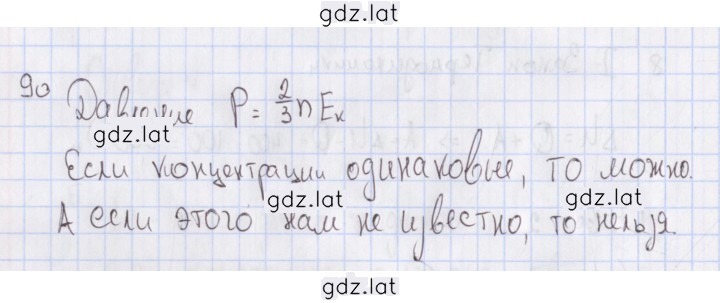 gdz.lat
90 Давление P = 2/3 n Eк
gdz.lat
Если концентрации одинаковые, то можно.
gdz.lat
gdz.lat
А если этого нам не известно, то нельзя.
gdz.lat